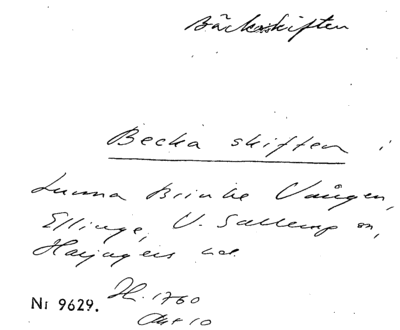 Bäckaskiften
Becka skiften i
Lunna Brinke Vången,
Ellinge, V. Sallerup sn,
Harjagers hd.
Nr 9629. Jb. 1760
Akt 10